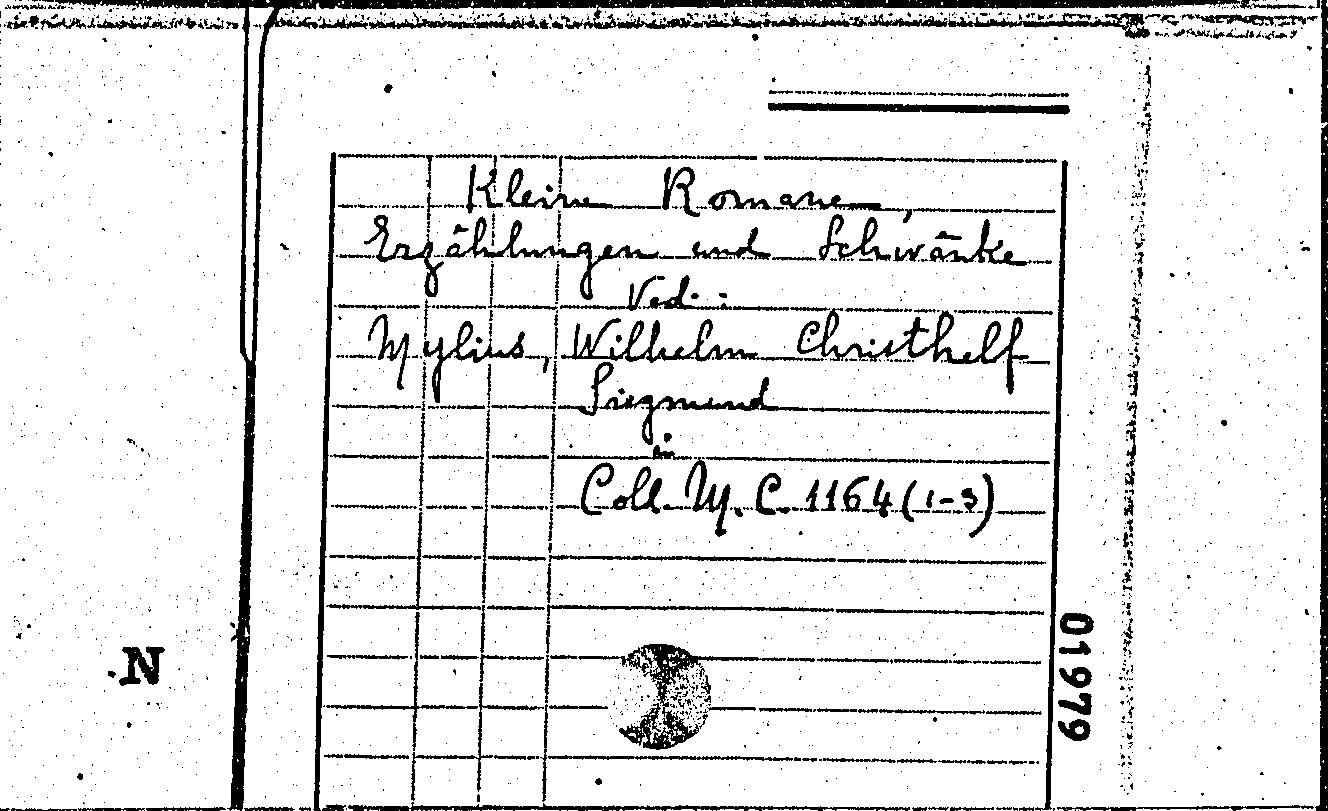 Kleine Romane,
Erzählungen und Schwänke
Vedi:
Mylius, Wilhelm Christhelf
Siegmund
in
Coll. M. C. 1164 (1-3)
01979
N